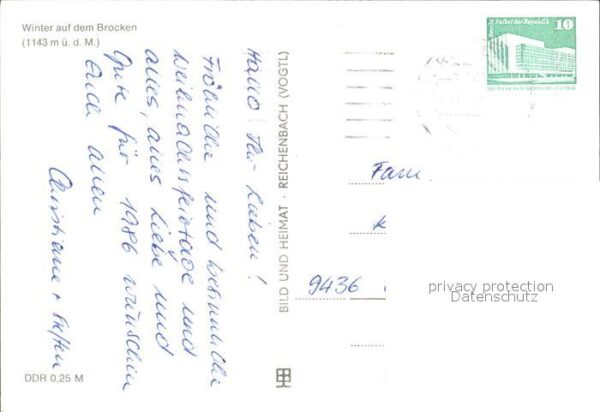 Winter auf dem Brocken
(1143 m ü. d. M.)
Hallo Ihr Lieben!
Fröhliche und besinnliche
Weihnachtsfeiertage und
alles, alles Liebe und
Gute für 1986 wünschen
Euch allen
Christiane + Steffen
DDR 0,25 M
BILD UND HEIMAT · REICHENBACH (VOGTL)
Palast der Republik
10
Fam
K
9436
privacy protection
Datenschutz